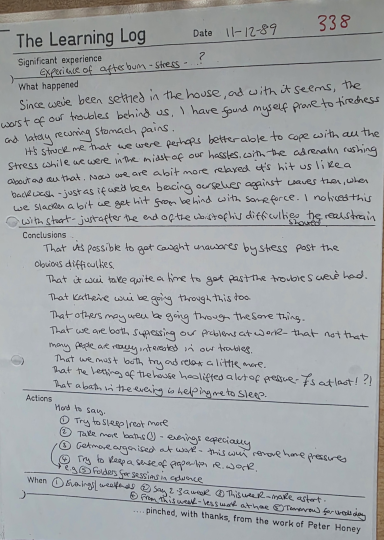 338
The Learning Log
Date 11-12-89
Significant experience
Experience of afterburn - stress - ?
What happened
Since we've been settled in the house, and with it seems, the
worst of our troubles behind us, I have found myself prone to tiredness
and lately recurring stomach pains.
It's struck me that we were perhaps better able to cope with all the
stress while we were in the midst of our hassles, with the adrenalin rushing
about and all that. Now we are a bit more relaxed it's hit us like a
backwash - just as if we'd been bracing ourselves against waves then, when
we slacken a bit we get hit from behind with same force. I noticed this
with start - just after the end of the worst of his difficulties the real strain
showed
Conclusions
That it's possible to get caught unawares by stress post the
obvious difficulties.
That it will take quite a time to get past the troubles we've had.
That Katherine will be going through this too
That others may well be going through the same thing.
That we are both supressing our problems at work - that not that
many people are really interested in our troubles.
That we must both try and relax a little more.
That the letting of the house has lifted a lot of pressure - at last! ?!
That a bath in the evening is helping me to sleep.
Actions
Hard to say.
① Try to sleep/rest more
② Take more baths (!) - evenings especially
③ Get more organised at work - this will remove home pressures
④ Try to keep a sense of proportion re. work.
e.g ⑤ Folders for sessions in advance
When ① Evenings/weekends ② Say 2-3 a week ③ This week - make a start.
④ From this week - less work at home ⑤ Tomorrow for
....pinched, with thanks, from the work of Peter Honey